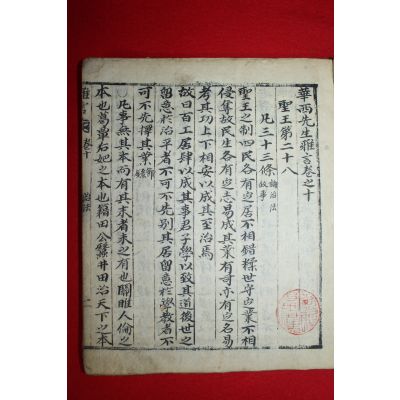 華西先生雅言卷之十
聖王第二十八
凡三十三條論治法故事
聖王之制四民各有定居不相錯糅世守之業不相
侵奪故民生各有定志易成其業有司亦有定名易
考其功上下相安以成其至治焉
故曰百工居肆以成其事君子學以致其道後世之
留意於治平者不可不先別其居留意於學敎者不
可不先擇其業
凡事無其本而有其末者未之有也關雎人倫之
本也葛覃后妃之本也籍田公蠶井田治天下之本
雅言 卷十 治法 一